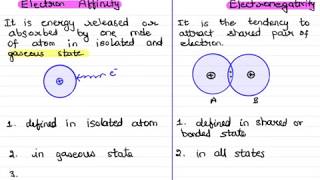 Electron Affinity
It is energy released or
absorbed by one mole
of atom in isolated and
gaseous state
e⁻
1. defined in isolated atom
2. in gaseous state
3.
Electronegativity
It is the tendency to
attract shared pair of
electron.
A B
1. defined in shared or
bonded state
2. in all states